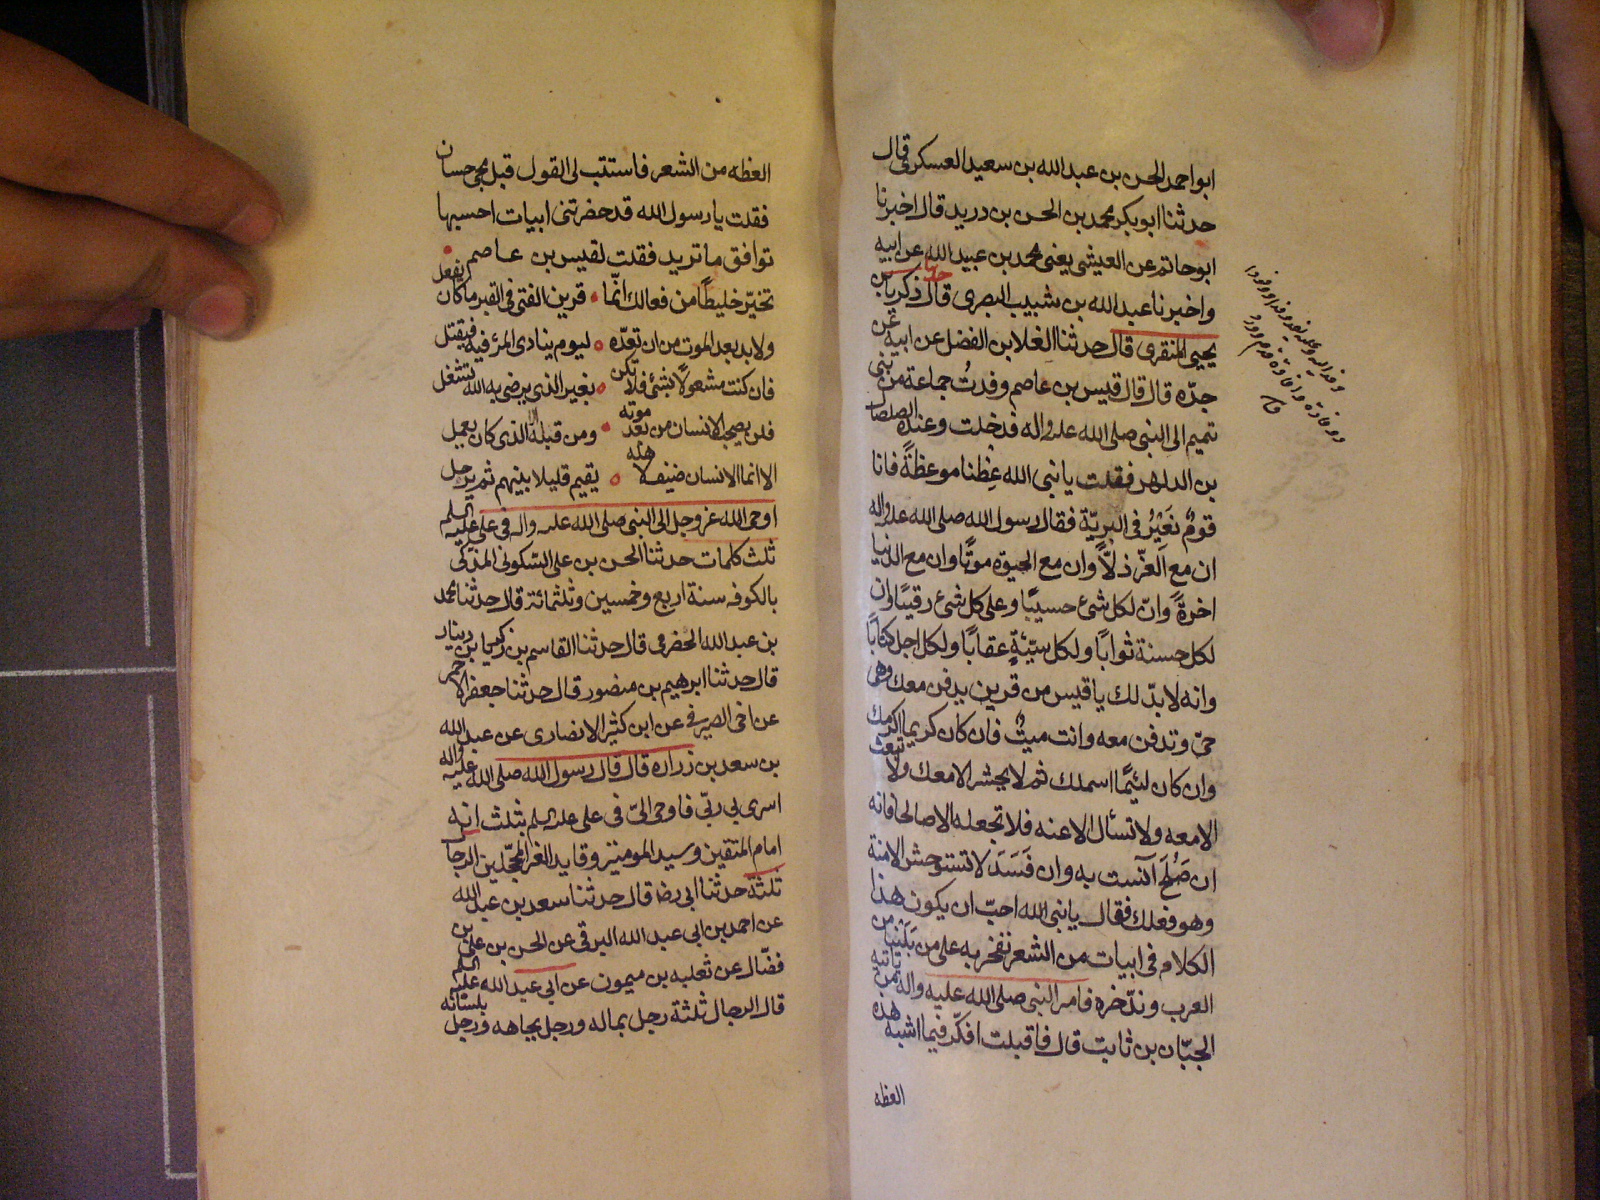 ابو احمد الحسن بن عبد الله بن سعيد العسكرى قال
حدثنا ابو بكر محمد بن الحسن بن دريد قال اخبرنا
ابو حاتم عن العيشى يعنى محمد بن عبيد الله عن ابيه
واخبرنا عبد الله بن شبيب البصرى قال حدثنا زكريا بن
يحيى المنقرى قال حدثنا العلا بن الفضل عن ابيه عن
جدّه قال قال قيس بن عاصم وفدتُ جماعة من بنى
تميم الى النبى صلى الله عليه واله فدخلت وعنده الصلصال
بن الدلهمر فقلت يا نبى الله عِظنا موعظةً فانا
قومٌ نَعْبُرُ فى البريّة فقال رسول الله صلى الله عليه واله
ان مع العزّ ذلّاً وان مع الحيوة موتًا وان مع الدنيا
اخرةً وانّ لكل شىء حسيبًا وعلى كل شىء رقيبًا وان
لكل حسنة ثوابًا ولكل سيّئةٍ عقابًا ولكل اجل كتابًا
وانه لا بدّ لك يا قيس من قرين يدفن معك وهو
حىّ وتدفن معه وانت ميتٌ فان كان كريما اكرمك
وان كان لئيمًا اسلمك ثم لا يحشر الا معك ولا تبعث
الا معه ولا تسأل الا عنه فلا تجعله الا صالحا فانه
ان صَلُحَ آنست به وان فَسَدَ لا تستوحش الا منه
وهو فعلك فقال يا نبى الله احبّ ان يكون هذا
الكلام فى ابيات من الشعر نفخر به على من يَلينا من
العرب وندّخره فامر النبى صلى الله عليه واله من ياتيه
الحبّان بن ثابت قال فاقبلت افكّر فيما اشبه هذه
العظه
العظه من الشعر فاستتب لى القول قبل مجى حسان
فقلت يا رسول الله قد حضرتنى ابيات احسبها
توافق ما تريد فقلت لقيس بن عاصم
تخيّر خليطًا من فعالك انّما قرين الفتى فى القبر ما كان يفعل
ولا بد بعد الموت من ان تعدّه ليوم ينادى المرء فيه فيقبل
فان كنت مشغولًا بشئ فلا تكن بغير الذى يرضى به الله تشغل
فلن يصحب الانسان من بعد موته ومن قبله الا الذى كان يعمل
الا انما الانسان ضيف لاهله يقيم قليلا بينهم ثم يرحل
اوحى الله عز وجل الى النبى صلى الله عليه واله فى على عليه السلم
ثلث كلمات حدثنا الحسن بن على السّكونى المذكّى
بالكوفه سنة اربع وخمسين وثلثمائة قال حدثنا محمد
بن عبد الله الحضرمى قال حدثنا القاسم بن زكريا بن دينار
قال حدثنا ابرهيم بن منصور قال حدثنا جعفر الاحمر
عن اخى الصيرفى عن ابن كثير الانصارى عن عبد الله
بن سعد بن زراره قال قال رسول الله صلى الله عليه واله
اسرى بى ربّى فاوحى الىّ فى على عليه السلم بثلث انه
امام المتقين وسيد المومنين وقايد الغر المحجّلين الرجال
ثلثة حدثنا ابى رضه قال حدثنا سعد بن عبد الله
عن احمد بن ابى عبد الله البرقى عن الحسن بن على بن
فضّال عن ثعلبه بن ميمون عن ابى عبد الله عليه السلم
قال الرجال ثلثة رجل بماله ورجل بجاهه ورجل بلسانه